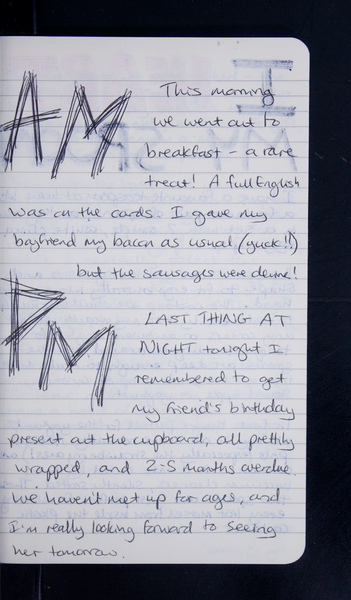 AM
This morning
we went out to
breakfast – a rare
treat! A full English
was on the cards. I gave my
boyfriend my bacon as usual (yuck!!)
but the sausages were devine!
PM
LAST THING AT
NIGHT tonight I
remembered to get
my friend's birthday
present out the cupboard, all prettily
wrapped, and 2.5 months overdue.
We haven't met up for ages, and
I'm really looking forward to seeing
her tomorrow.